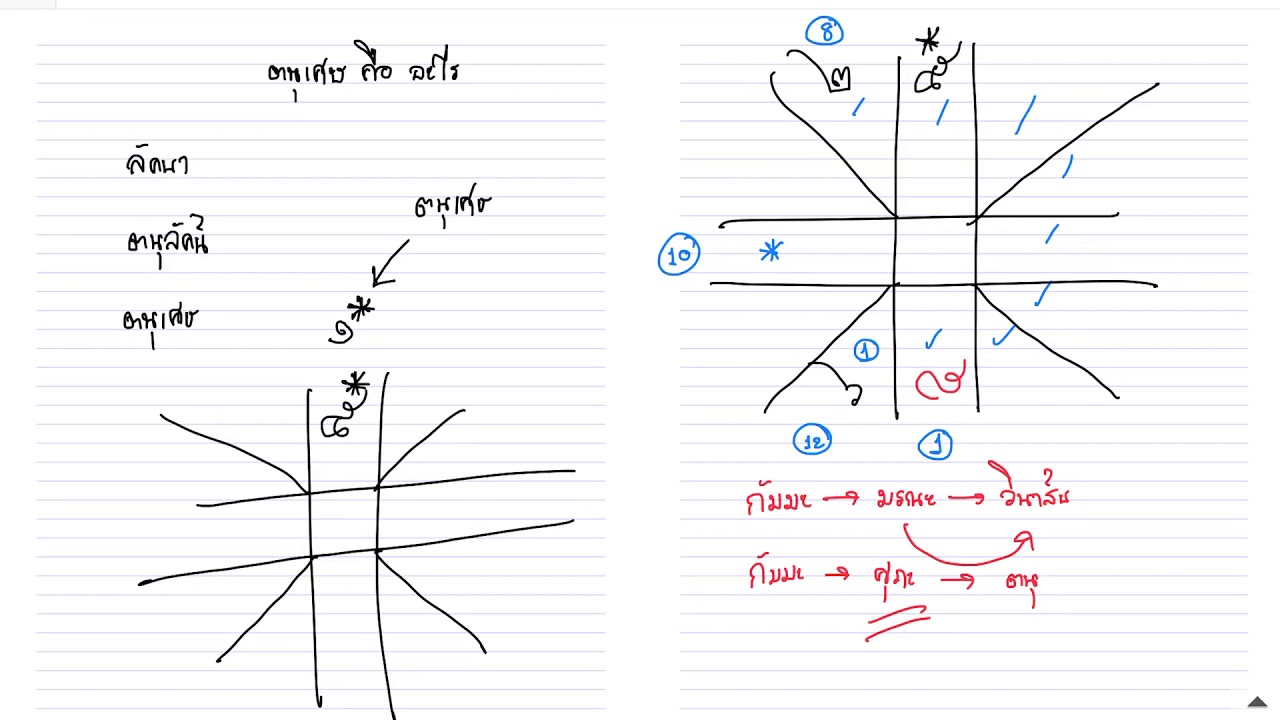 ตนุเศษ คือ อะไร
ลัคนา
ตนุลัคน์
ตนุเศษ
ตนุเศษ
๑*
*
8
*
๓
10
*
1
12
1
กัมมะ → มรณะ → วินาสน์
กัมมะ → ศุภะ → ตนุ